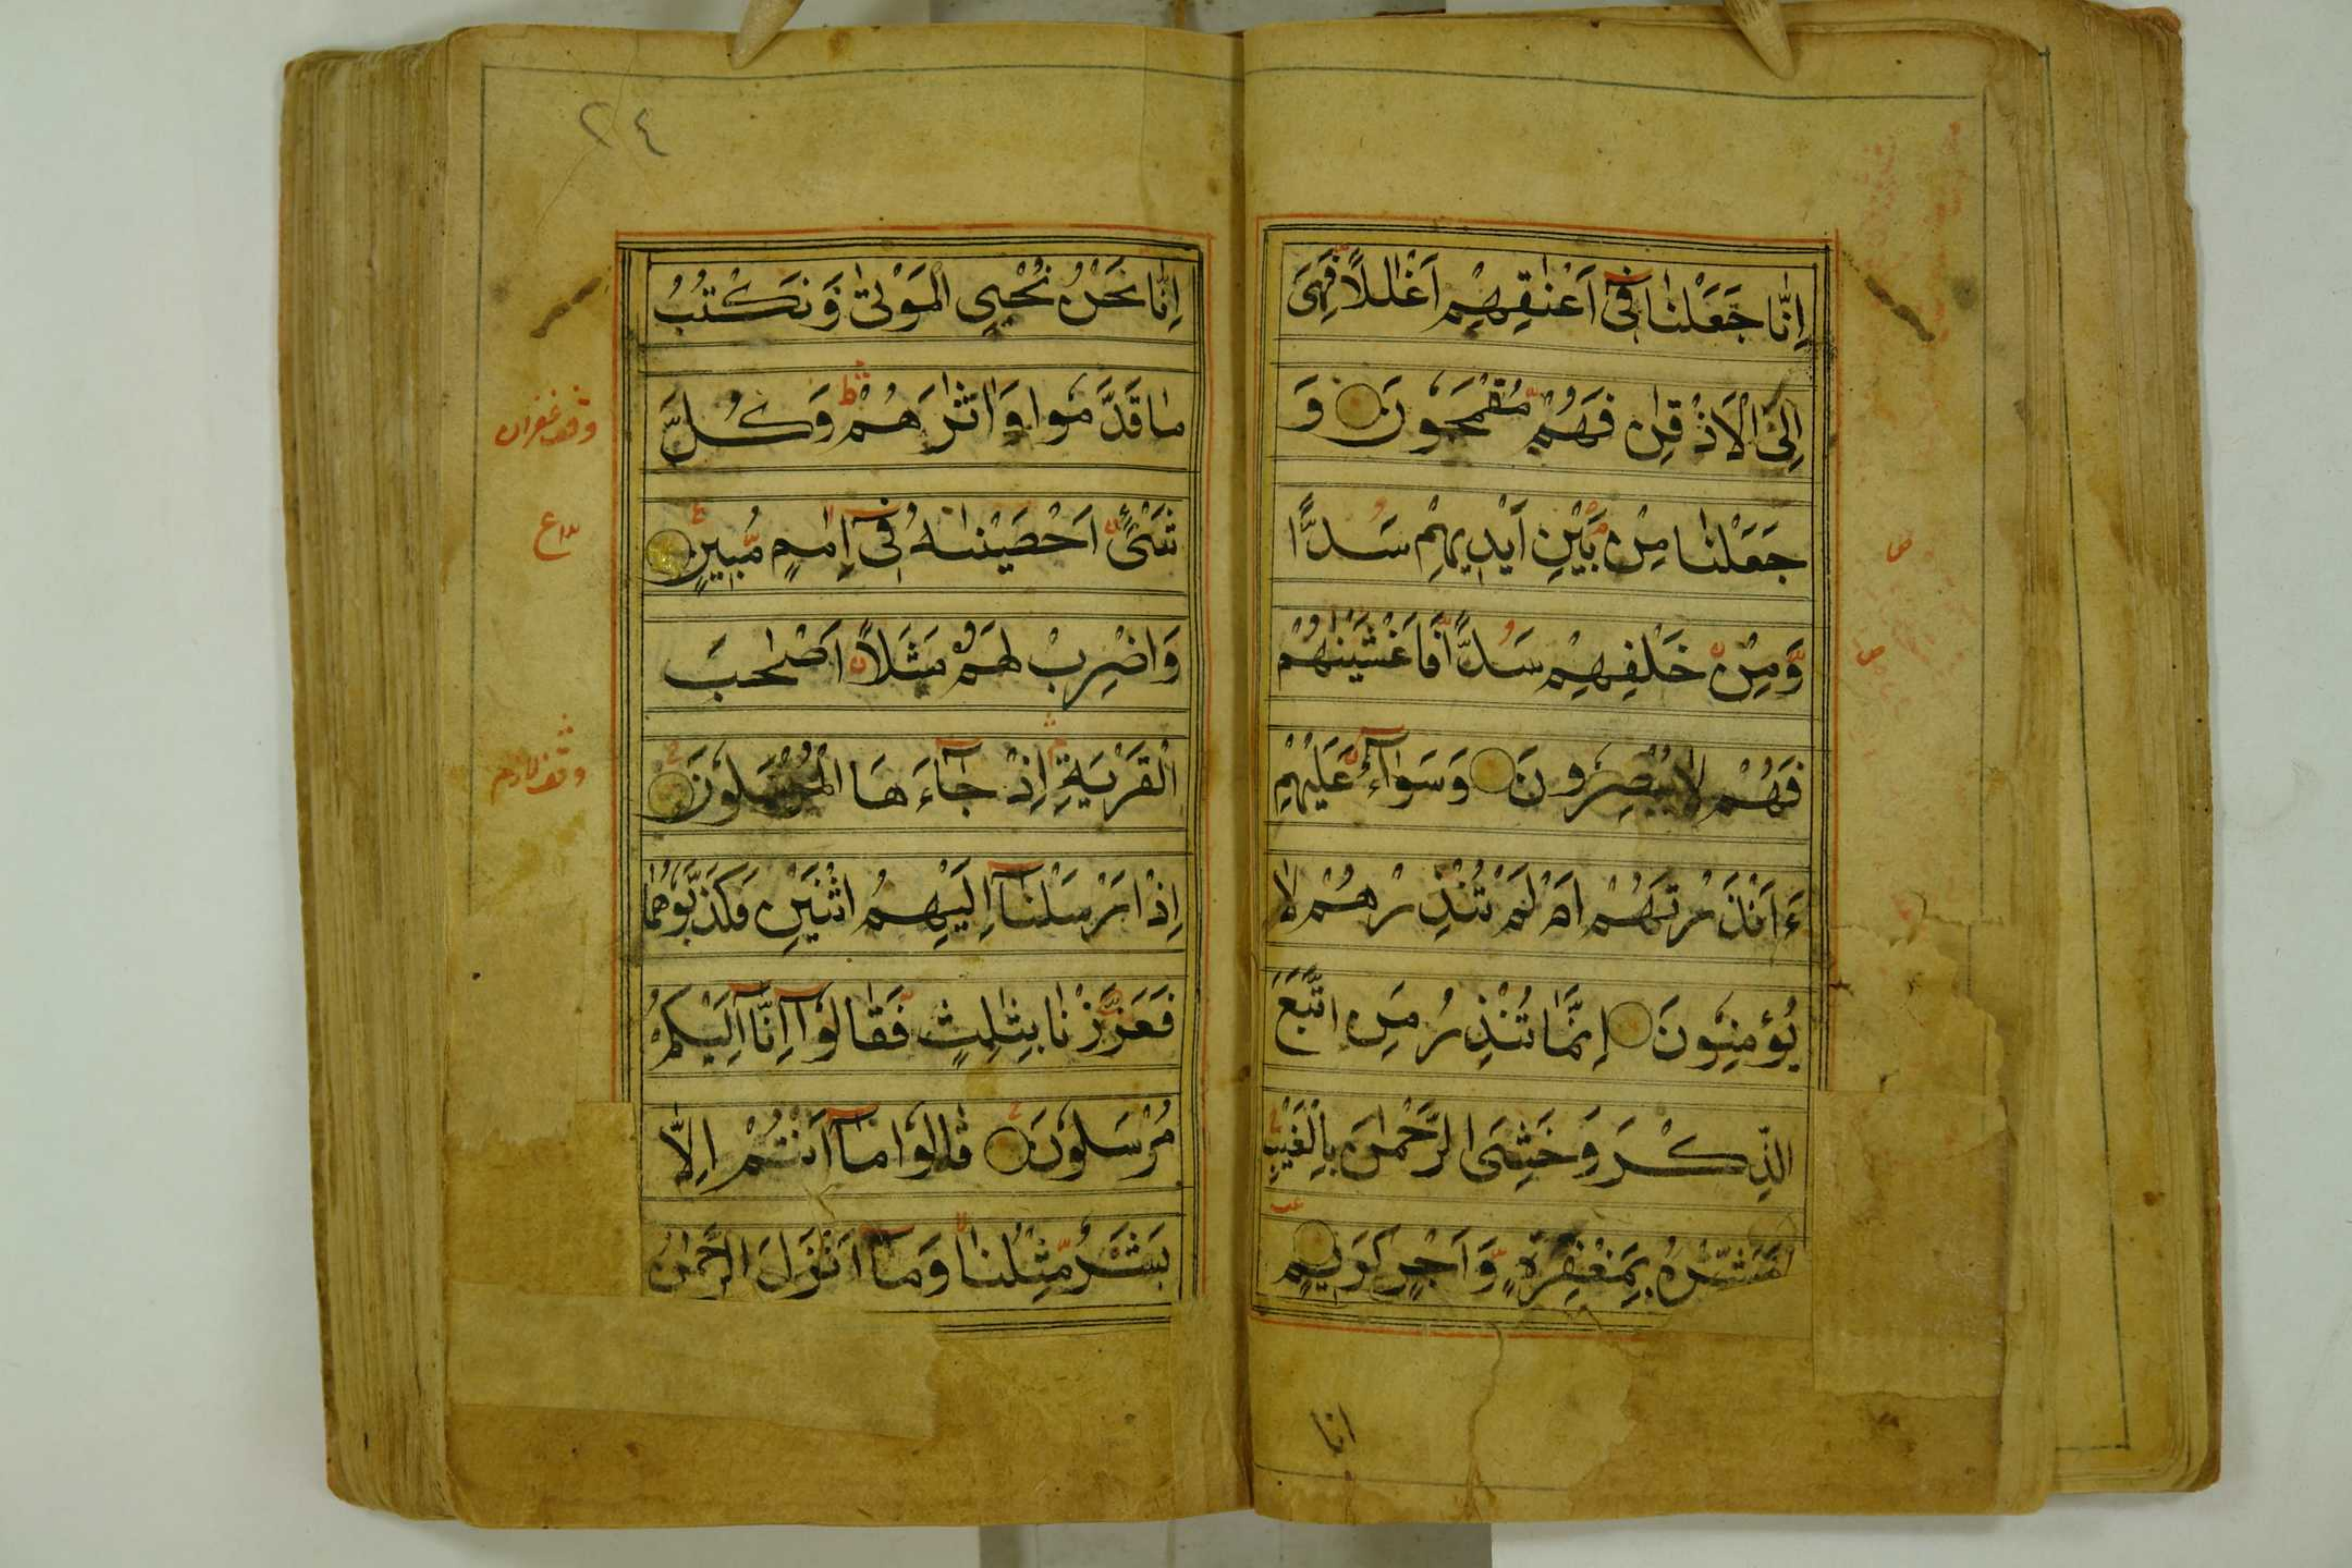 اِنَّا جَعَلْنَا فِیٓ اَعْنٰقِهِمْ اَغْلٰلًا فَهِیَ
اِلَی الْاَذْقٰنِ فَهُمْ مُّقْمَحُوْنَ وَ
جَعَلْنَا مِنْۢ بَیْنِ اَیْدِیْهِمْ سَدًّا
وَّمِنْ خَلْفِهِمْ سَدًّا فَاَغْشَیْنٰهُمْ
فَهُمْ لَا یُبْصِرُوْنَ وَسَوَآءٌ عَلَیْهِمْ
ءَاَنْذَرْتَهُمْ اَمْ لَمْ تُنْذِرْهُمْ لَا
یُؤْمِنُوْنَ اِنَّمَا تُنْذِرُ مَنِ اتَّبَعَ
الذِّكْرَ وَخَشِیَ الرَّحْمٰنَ بِالْغَیْبِ
فَبَشِّرْهُ بِمَغْفِرَةٍ وَّاَجْرٍ كَرِیْمٍ
انا
ص
ص
٢٤
اِنَّا نَحْنُ نُحْیِ الْمَوْتٰی وَنَكْتُبُ
مَا قَدَّمُوْا وَاٰثٰرَهُمْ ط وَكُلَّ
شَیْءٍ اَحْصَیْنٰهُ فِیٓ اِمٰمٍ مُّبِیْنٍ
وَاضْرِبْ لَهُمْ مَّثَلًا اَصْحٰبَ
الْقَرْیَةِ اِذْ جَآءَهَا الْمُرْسَلُوْنَ
اِذْ اَرْسَلْنَآ اِلَیْهِمُ اثْنَیْنِ فَكَذَّبُوْهُمَا
فَعَزَّزْنَا بِثٰلِثٍ فَقَالُوْٓا اِنَّآ اِلَیْكُمْ
مُّرْسَلُوْنَ قَالُوْا مَآ اَنْتُمْ اِلَّا
بَشَرٌ مِّثْلُنَا وَمَآ اَنْزَلَ الرَّحْمٰنُ
وقف غفران